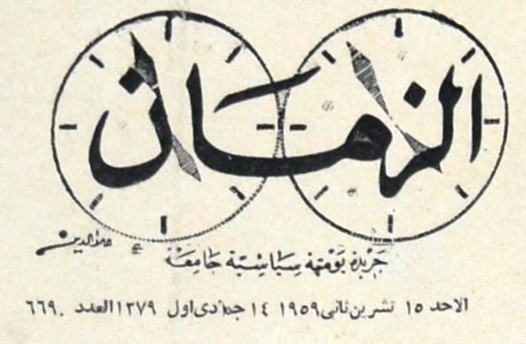 الزمان
علاء الدين
جريدة يومية سياسية جامعة
الاحد ١٥ تشرين ثاني ١٩٥٩ ١٤ جمادى اول ١٣٧٩ العدد ٦٦٩٠